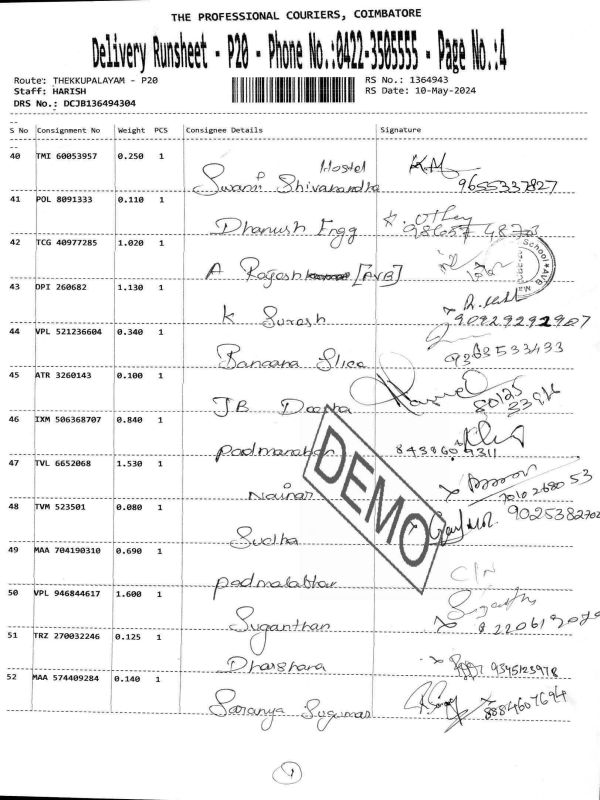 THE PROFESSIONAL COURIERS, COIMBATORE
Delivery Runsheet - P20 - Phone No.:0422-3505555 - Page No.:4
Route: THEKKUPALAYAM - P20 RS No.: 1364943
Staff: HARISH RS Date: 10-May-2024
DRS No.: DCJB136494304
S No Consignment No Weight PCS Consignee Details Signature
40 TMI 60053957 0.250 1 Swami Shivanandha Hostel 9655337827
41 POL 8091333 0.110 1 Dhanush Engg
42 TCG 40977285 1.020 1 A Rajesh [AVB]
School * AVB
43 OPI 260682 1.130 1 K Suresh 9092929 2987
44 VPL 521236604 0.340 1 Banaana Slice 9363533433
45 ATR 3260143 0.100 1 JB Deepha 80125
46 IXM 506368707 0.840 1 Padmanaban 8438609311
47 TVL 6652068 1.530 1 Nainar 7010268053
48 TVM 523501 0.080 1 Sudha 9025382702
DEMO
49 MAA 704190310 0.690 1 Padmalabhar C/N
50 VPL 946844617 1.600 1 Suganthan
51 TRZ 270032246 0.125 1 Dharshana 9345123978
52 MAA 574409284 0.140 1 Saranya Sugumar 8884607694
1